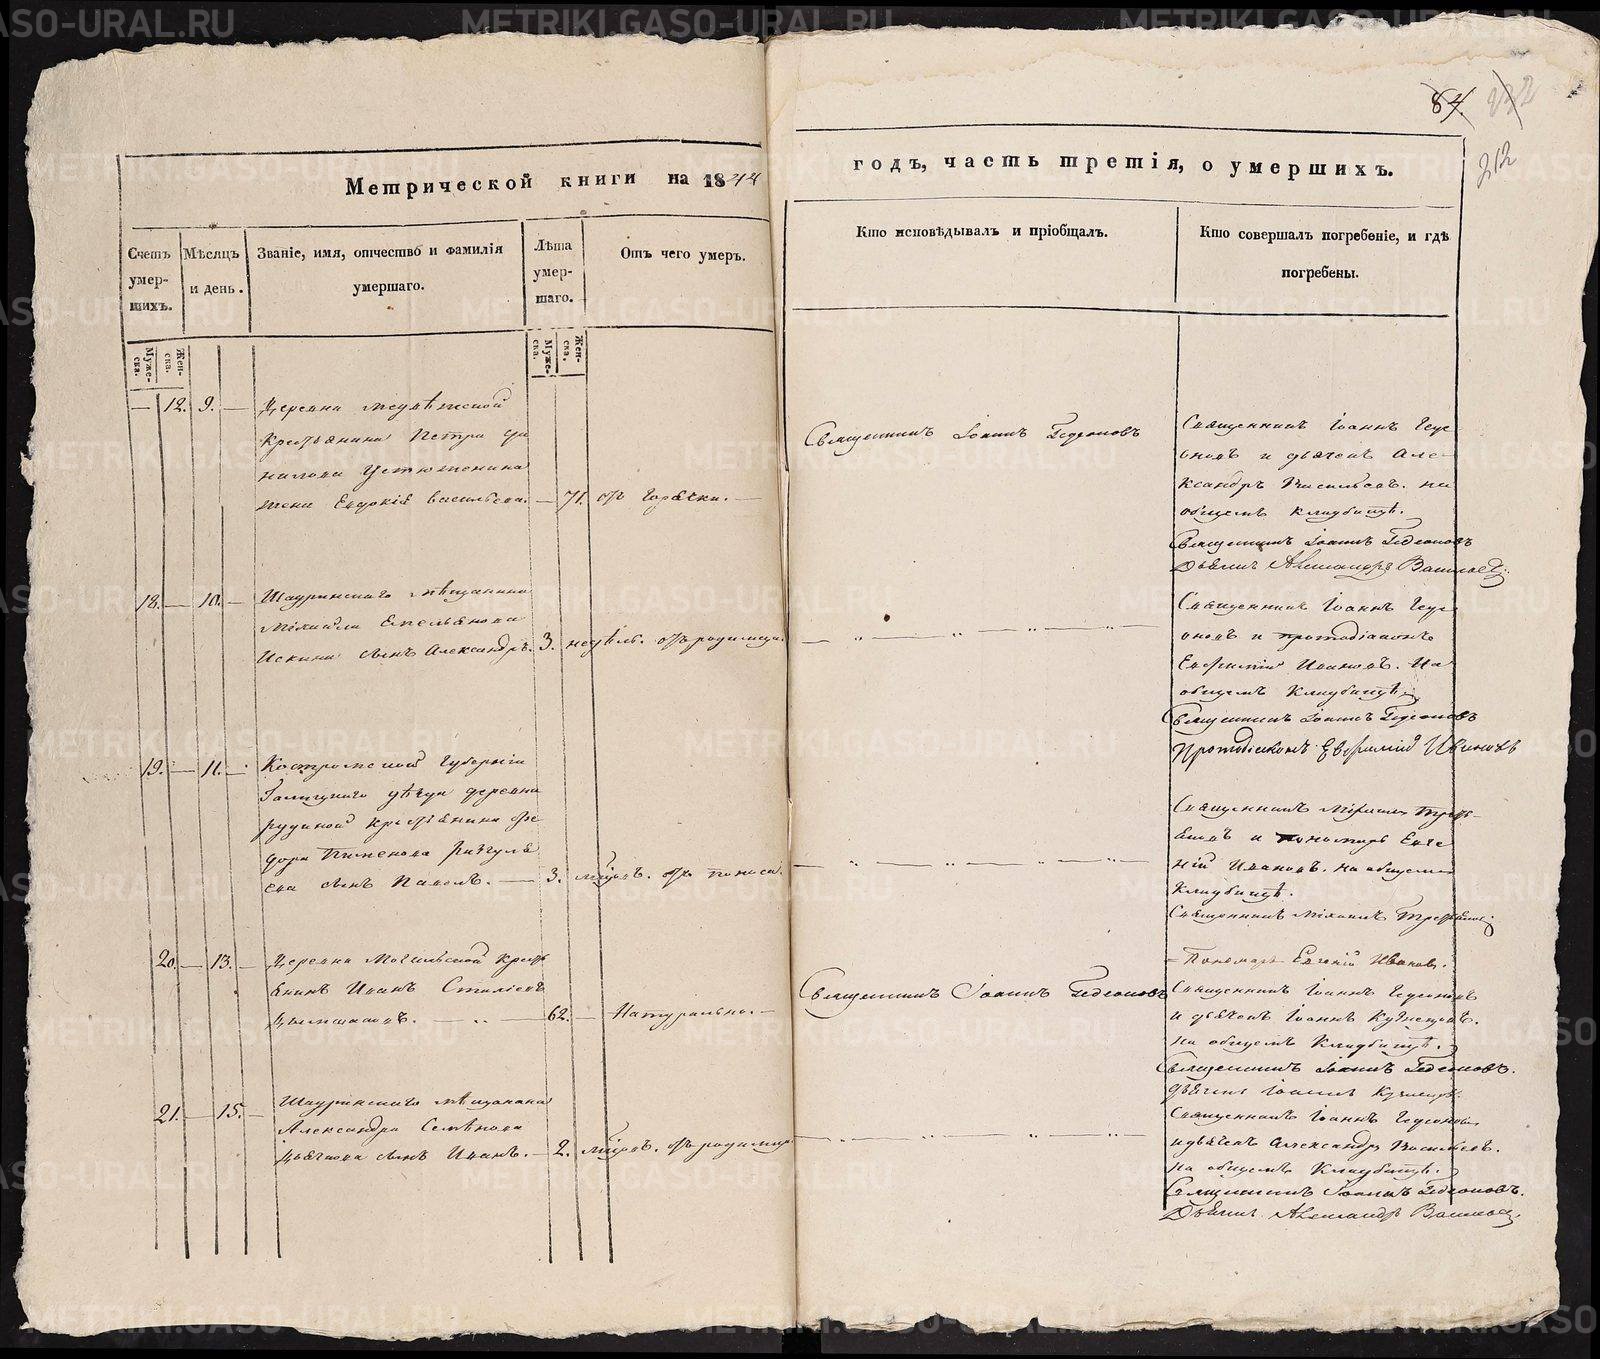 84. 232
212
Метрической книги на 1844
годъ, часть третія, о умершихъ.
Счетъ умер-шихъ.
Мѣсяцъ и день.
Званіе, имя, отчество и фамилія умершаго.
Лѣта умер-шаго.
Отъ чего умеръ.
Кто исповѣдывалъ и пріобщалъ.
Кто совершалъ погребеніе, и гдѣ погребены.
Муже-ска.
Жен-ска.
Муже-ска.
Жен-ска.
— 12. 9. — Деревни
Крестьянина Петра Да
нилова Устюженина
жена Евдокія Васильева. — 71. отъ горячки. —
Священникъ Іоаннъ Гедеоновъ
Священникъ Іоаннъ Геде
оновъ и дьячекъ Але-
ксандръ Васильевъ. на
общемъ кладбищѣ.
Священникъ Іоаннъ Гедеоновъ
Дьячекъ Александръ Васильевъ
18. — 10. — Шадринскаго мѣщанина
Михаила Емельянова
сынъ Александръ. 3. недѣль. отъ родимца.
Священникъ Іоаннъ Геде
оновъ и протодіаконъ
Евфимій Ивановъ. На
общемъ кладбищѣ.
Священникъ Іоаннъ Гедеоновъ
Протодіаконъ Евфимій Ивановъ
19. — 11. — Костромской Губерніи
Галицкаго уѣзда деревни
крестьянина Фе
дора Пименова
сынъ Павелъ. — 3. мѣсяц. отъ поноса.
Священникъ Михаилъ
и пономарь Евге
ній Ивановъ. На общемъ
кладбищѣ.
Священникъ Михаилъ
Пономарь Евгеній Ивановъ.
20. — 13. — Деревни крест
янинъ Иванъ
— 62. — Натурально. —
Священникъ Іоаннъ Гедеоновъ
Священникъ Іоаннъ Гедеоновъ
и дьячекъ Іоаннъ Кузнецовъ.
на общемъ кладбищѣ.
Священникъ Іоаннъ Гедеоновъ.
Дьячекъ Іоаннъ
21. — 15. — Шадринскаго мѣщанина
Александра Семенова
сынъ Иванъ. — 2. мѣсяц. отъ родимца
Священникъ Іоаннъ Гедеоновъ
и дьячекъ Александръ Васильевъ.
на общемъ кладбищѣ.
Священникъ Іоаннъ Гедеоновъ.
Дьячекъ Александръ Васильевъ
METRIKI.GASO-URAL.RU